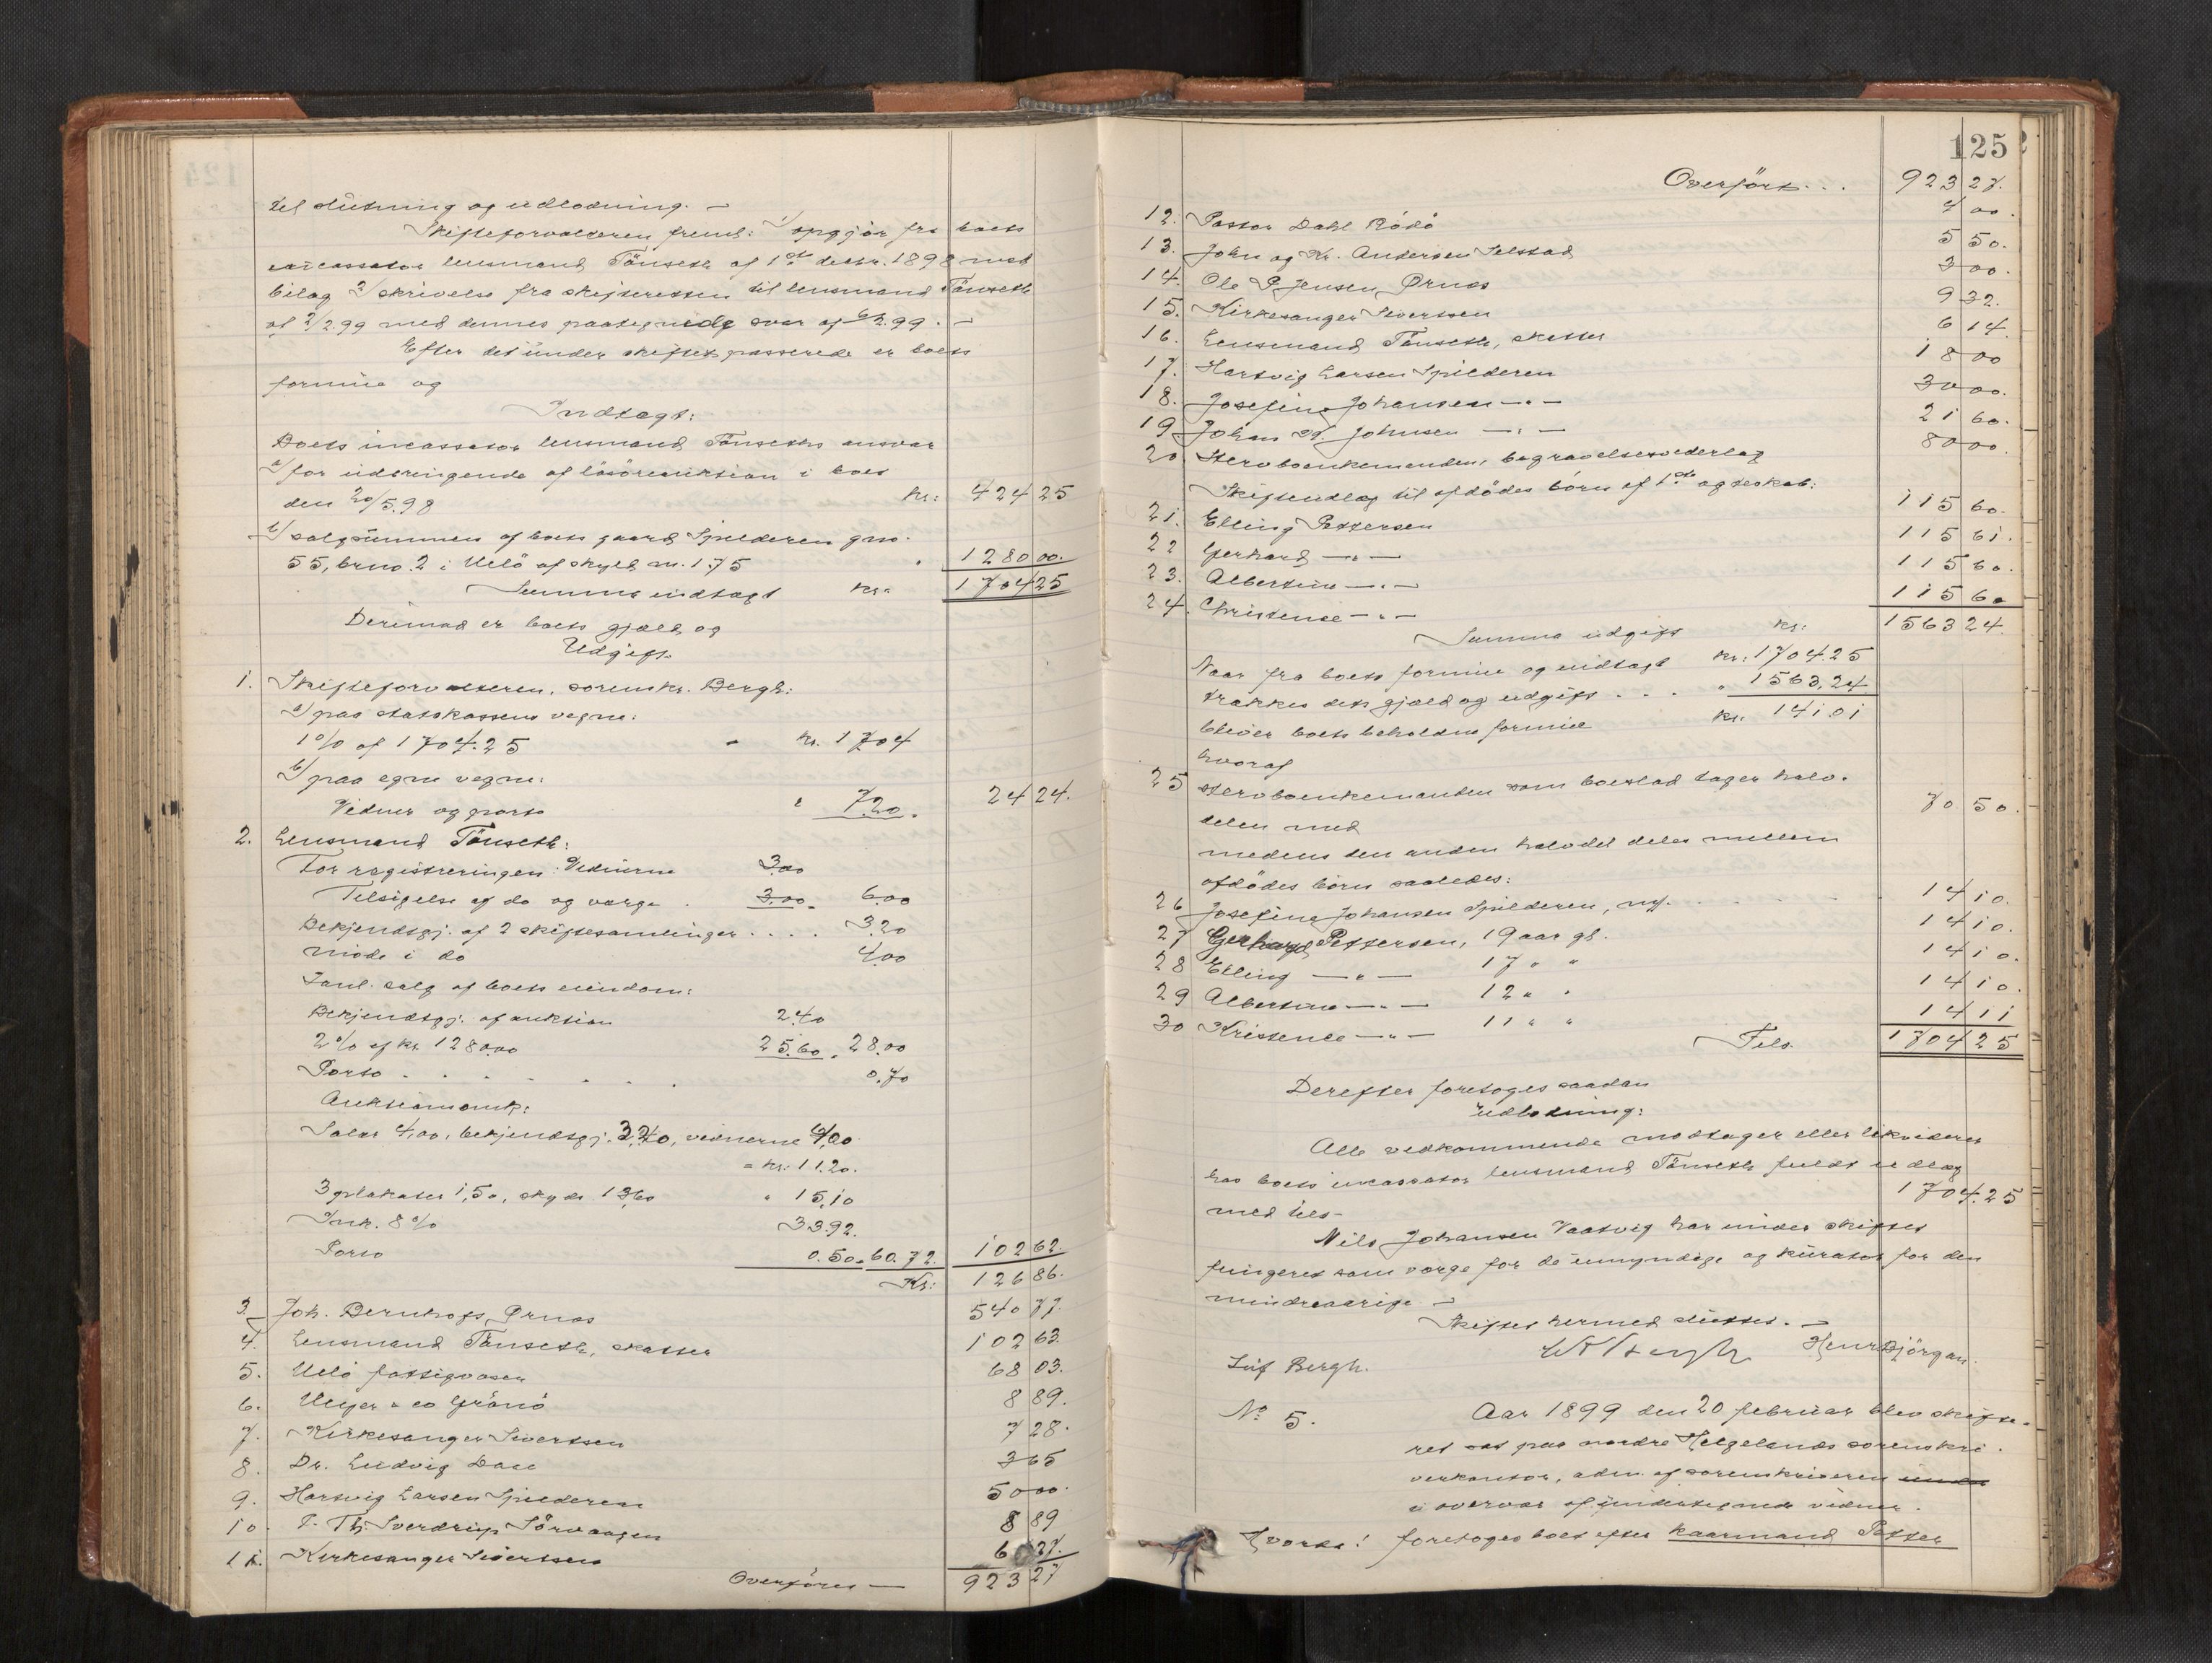 til slutning og udlodning. –
Skifteforvalteren freml: 1/ opgjör fra boets
incassator lensmand Tönseth af 1ste decbr. 1898 med
bilag 2/ skrivelse fra skifteretten til lensmand Tönseth
af 2/2.99 med dennes paategnede svar af 6/2.99. –
Efter det under skiftet passerede er boets
formue og
Indtægt:
Boets incassator lensmand Tönseths ansvar
a/ for udbringende af lösöreauktion i boet
den 20/5.98 Kr: 424 25
b/ salgsummen af boets gaard Spilderen gno.
55, brno. 2 i Melö af skyld m. 1.75 " 1280 00.
Summa indtægt Kr: 1704 25
Derimod er boets gjæld og
Udgift.
1. Skifteforvalteren, sorenskr. Bergh:
a/ paa statskassens vegne:
1% af 1704.25 - Kr. 17 04
b/ paa egne vegne:
Vidner og porto " 7.20. 24 24.
2. Lensmand Tönseth:
For registreringen: Vidnerne 3.00
Tilsigelse af do og værge . 3.00. 6.00
Bekjendtgj. af 2 skiftesamlinger . . . . 3.20
möde i do 4.00
Tanl. salg af boets eiendom:
Bekjendtgj. af auktion 2.40
2% af kr. 1280.00 25.60. 28.00
Porto . . . . . . . 0.70
Auktionsomk:
Salær 4,00, bekjendtgj. 3,20, vidnerne 4,00
= kr: 11.20.
3 plakater 1,50, skyds 13,60 " 15,10
Ink. 8% 33.92.
Porto 0.50. 60.72. 102 62.
Kr: 126 86.
3. Joh. Bernhoft, Ørnæs 540 77.
4. Lensmand Tönseth, skatter 102 63.
5. Melö fattigvæsen 68 03.
6. Meyer & co Grönö 8 89.
7. Kirkesanger Sivertsen 7 28.
8. Dr. Ludvig Daae 3 65
9. Hartvig Larsen Spilderen 50 00.
10. P. Th. Sverdrup Sörvaagen 8 89
11. Kirkesanger Sivertsen 6 27.
Overföres — 923 27
125
Overfört. . . 923 27.
12. Pastor Dahl Rödö 4 00.
13. John og Kr. Andersen Selstad 5 50.
14. Ole P. Jensen, Ørnæs 3 00.
15. Kirkesanger Sivertsen 9 32.
16. Lensmand Tönseth, skatter 6 14.
17. Hartvig Larsen Spilderen 18 00
18. Josefine Johansen — " — 30 00.
19 Johan M. Johnsen — " — 21 60.
20. Stervboenkemanden, begravelsesvederlag 80 00.
Skifteudlæg til afdödes börn af 1ste ægteskab:
21. Elling Pettersen 115 60.
22 Gerhard — " — 115 61.
23. Albertine — " — 115 60.
24. Christense — " — 115 60
Summa udgift Kr: 1563 24.
Naar fra boets formue og indtægt Kr: 1704.25
trækkes dets gjæld og udgift . . . " 1563,24
bliver boets beholdne formue Kr. 141 01
hvoraf
25 stervboenkemanden som boeslod tager halv-
delen med 70 50.
medens den anden halvdel deles mellem
afdödes börn saaledes:
26 Josefine Johansen Spilderen, my. . . . . . 14 10.
27 Gerhard Pettersen, 19 aar gl. 14 10.
28 Elling — " — 17 " " 14 10.
29 Albertine — " — 12 " " 14 10.
30 Kristense — " — 11 " " 14 11
Tils. 1704 25
Derefter foretoges saadan
udlodning:
Alle vedkommende modtager eller likviderer
hos boets incassator lensmand Tönseth fuldt udlæg
med tils- 1704.25
Nils Johansen Vaatvig har under skiftet
fungeret som værge for de umyndige og kurator for den
mindreaarige –
Skiftet hermed sluttet. –
Leif Bergh. Henr Björgan.
No 5. Aar 1899 den 20 februar blev skifte-
ret sat paa nordre Helgelands sorenskri-
verkontor, adm. af sorenskriveren
i overvær af undertegnede vidner.
Hvorda! foretoges boet efter kaarmand Petter